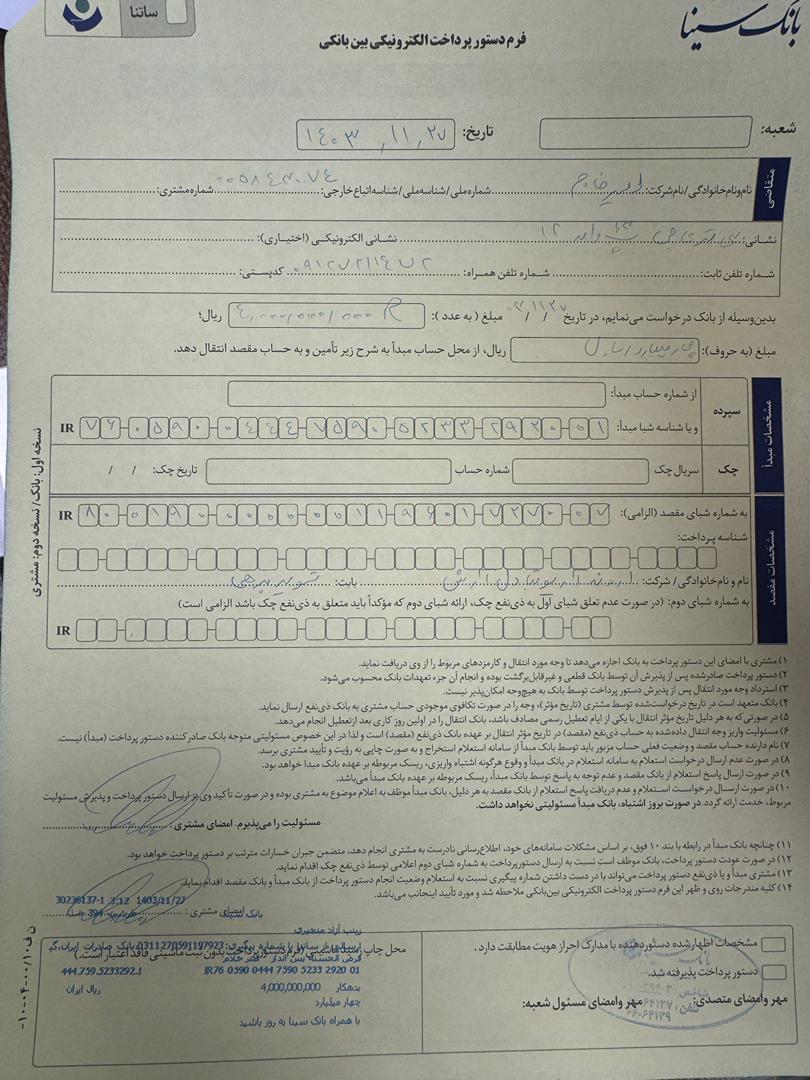 ساتنا
بانک سینا
فرم دستور پرداخت الکترونیکی بین بانکی
شعبه:
تاریخ: ۱۴۰۳,۱۱,۲۷
متقاضی
نام و نام خانوادگی/ نام شرکت: امیر خادم شماره ملی/ شناسه ملی/ شناسه اتباع خارجی: شماره مشتری:
نشانی: واحد ۱۲ نشانی الکترونیکی (اختیاری):
شماره تلفن ثابت: شماره تلفن همراه: ۰۹۱۲۷۲۱۱۴۷۲ کدپستی:
بدین‌وسیله از بانک درخواست می‌نمایم، در تاریخ ۰۳/۱۱/۲۷ مبلغ (به عدد): ۴,۰۰۰/۰۰۰/۰۰۰ R ریال؛
مبلغ (به حروف): چهار میلیارد ریال ریال، از محل حساب مبدأ به شرح زیر تأمین و به حساب مقصد انتقال دهد.
مشخصات مبدأ
سپرده
از شماره حساب مبدأ:
و یا شناسه شبا مبدأ: IR ۷۶-۰۵۹۰-۰۴۴۴-۷۵۹۰-۵۲۳۳-۲۹۲۰-۰۱
چک
سریال چک شماره حساب تاریخ چک: / /
مشخصات مقصد
به شماره شبای مقصد (الزامی): IR ۸۰-۰۱۹۰-۰۰۰۰-۰۱۱۹-۶۰۱۷-۲۷۰۰-۰۷
شناسه پرداخت:
نام و نام خانوادگی/ شرکت: بابت:
به شماره شبای دوم: (در صورت عدم تعلق شبای اوّل به ذی‌نفع چک، ارائه شبای دوم که مؤکداً باید متعلق به ذی‌نفع چک باشد الزامی است)
IR
نسخه اول: بانک/ نسخه دوم: مشتری
۱) مشتری با امضای این دستور پرداخت به بانک اجازه می‌دهد تا وجه مورد انتقال و کارمزدهای مربوط را از وی دریافت نماید.
۲) دستور پرداخت صادرشده پس از پذیرش آن توسط بانک قطعی و غیرقابل‌برگشت بوده و انجام آن جزء تعهدات بانک محسوب می‌شود.
۳) استرداد وجه مورد انتقال پس از پذیرش دستور پرداخت توسط بانک به هیچ‌وجه امکان‌پذیر نیست.
۴) بانک متعهد است در تاریخ درخواست‌شده توسط مشتری (تاریخ مؤثر)، وجه را در صورت تکافوی موجودی حساب مشتری به بانک ذی‌نفع ارسال نماید.
۵) در صورتی‌که به هر دلیل تاریخ مؤثر انتقال با یکی از ایام تعطیل رسمی مصادف باشد، بانک انتقال را در اولین روز کاری بعد از تعطیل انجام می‌دهد.
۶) مسئولیت واریز وجه انتقال داده‌شده به حساب ذی‌نفع (مقصد) در تاریخ مؤثر انتقال بر عهده بانک ذی‌نفع (مقصد) است و لذا در این خصوص مسئولیتی متوجه بانک صادرکننده دستور پرداخت (مبدأ) نیست.
۷) نام دارنده حساب مقصد و وضعیت فعلی حساب مزبور باید توسط بانک مبدأ از سامانه استعلام استخراج و به صورت چاپی به رؤیت و تأیید مشتری برسد.
۸) در صورت عدم ارسال درخواست استعلام به سامانه استعلام در بانک مبدأ و وقوع هرگونه اشتباه واریزی، ریسک مربوطه بر عهده بانک مبدا خواهد بود.
۹) در صورت ارسال پاسخ استعلام از بانک مقصد و عدم توجه به پاسخ توسط بانک مبدأ، ریسک مربوطه بر عهده بانک مبدأ می‌باشد.
۱۰) در صورت ارسال درخواست استعلام و عدم دریافت پاسخ استعلام از بانک مقصد به هر دلیل، بانک مبدأ موظف به اعلام موضوع به مشتری بوده و در صورت تأکید وی بر ارسال دستور پرداخت و پذیرش مسئولیت
مربوط، خدمت ارائه گردد. در صورت بروز اشتباه، بانک مبدأ مسئولیتی نخواهد داشت.
مسئولیت را می‌پذیرم. امضای مشتری:
۱۱) چنانچه بانک مبدأ در رابطه با بند ۱۰ فوق، بر اساس مشکلات سامانه‌های خود، اطلاع‌رسانی نادرست به مشتری انجام دهد، متضمن جبران خسارات مترتب بر دستور پرداخت خواهد بود.
۱۲) در صورت عودت دستور پرداخت، بانک موظف است نسبت به ارسال دستورپرداخت به شماره شبای دوم اعلامی توسط ذی‌نفع چک اقدام نماید.
۱۳) مشتری مبدأ و یا ذی‌نفع دستور پرداخت می‌تواند با در دست داشتن شماره پیگیری نسبت به استعلام وضعیت انجام دستور پرداخت از بانک مبدأ و بانک مقصد اقدام نماید.
۱۴) کلیه مندرجات روی و ظهر این فرم دستور پرداخت الکترونیکی بین‌بانکی ملاحظه شد و مورد تأیید اینجانب می‌باشد.
امضای مشتری:
30236137-1 3:12 1403/11/27
بانک سینا
زینب آزاد منجیری
ارسالی از ساتنا با شماره پیگیری: 0311270591197923 بانک صادرات ایران
قرض الحسنه پس انداز امیر خادم
444.759.5233292.1 IR76 0590 0444 7590 5233 2920 01
بدهکار 4,000,000,000 ریال ایران
چهار میلیارد
با همراه بانک سینا به روز باشید
مشخصات اظهارشده دستوردهنده با مدارک احراز هویت مطابقت دارد.
دستور پرداخت پذیرفته شد.
مهر و امضای متصدی: مهر و امضای مسئول شعبه: